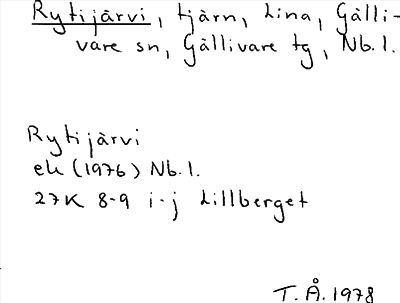 Rytijärvi, tjärn, Lina, Gälli-
vare sn, Gällivare tg, Nb.l.
Rytijärvi
ek (1976) Nb.l.
27K 8-9 i-j Lillberget
T.Å. 1978